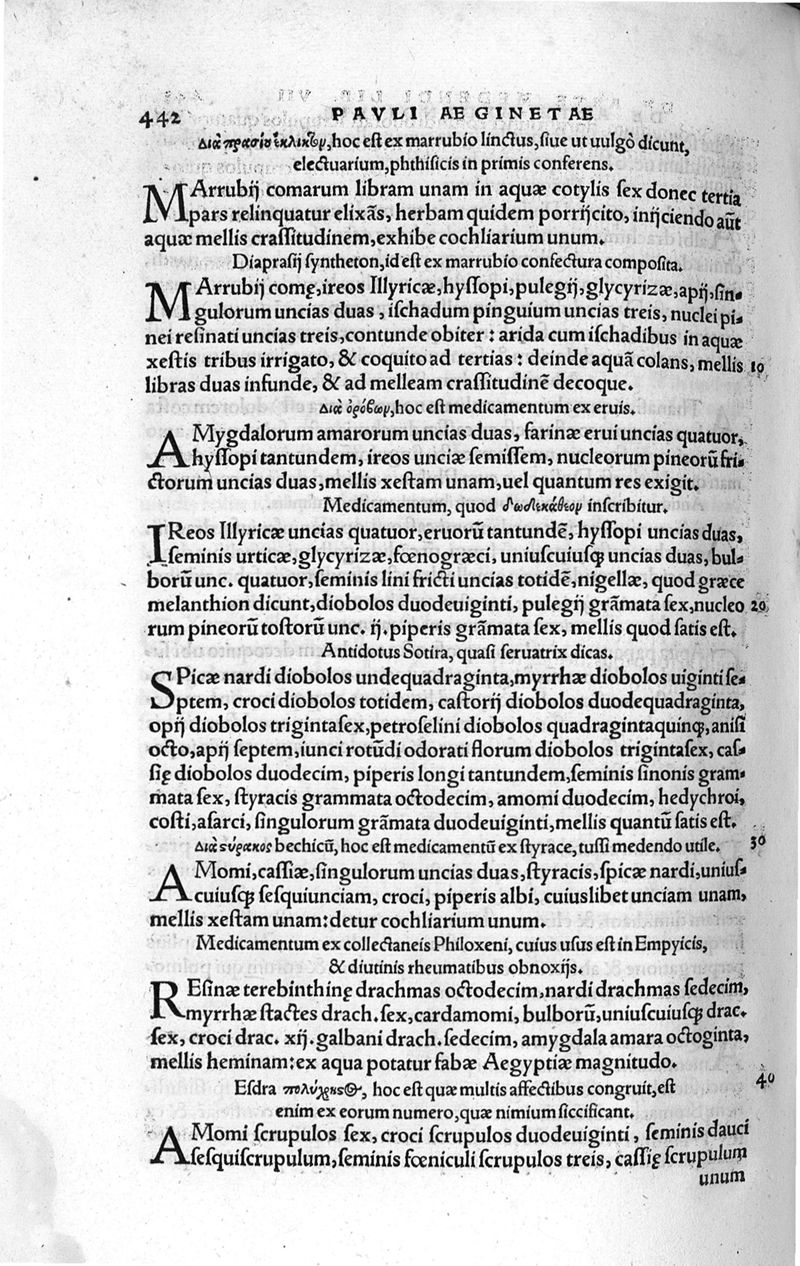 442 PAVLI AE GINETAE
Διὰ πρασίου ἐκλικτὸν, hoc eſt ex marrubio linctus, ſiue ut uulgò dicunt,
electuarium, phthiſicis in primis conferens.
MArrubij comarum libram unam in aquæ cotylis ſex donec tertia
pars relinquatur elixãs, herbam quidem porrijcito, inijciendo aũt
aquæ mellis craſſitudinem, exhibe cochliarium unum.
Diapraſij ſyntheton, id eſt ex marrubio confectura compoſita.
MArrubij comę, ireos Illyricæ, hyſſopi, pulegij, glycyrizæ, apij, ſin-
gulorum uncias duas, iſchadum pinguium uncias treis, nuclei pi-
nei reſinati uncias treis, contunde obiter: arida cum iſchadibus in aquæ
xeſtis tribus irrigato, & coquito ad tertias: deinde aquã colans, mellis 10
libras duas infunde, & ad melleam craſſitudinẽ decoque.
Διὰ ὀρόβων, hoc eſt medicamentum ex eruis.
AMygdalorum amarorum uncias duas, farinæ erui uncias quatuor,
hyſſopi tantundem, ireos unciæ ſemiſſem, nucleorum pineorũ fri-
ctorum uncias duas, mellis xeſtam unam, uel quantum res exigit.
Medicamentum, quod inſcribitur.
IReos Illyricæ uncias quatuor, eruorũ tantundẽ, hyſſopi uncias duas,
ſeminis urticæ, glycyrizæ, fœnogræci, uniuſcuiuſq; uncias duas, bul-
borũ unc. quatuor, ſeminis lini fricti uncias totidẽ, nigellæ, quod græce
melanthion dicunt, diobolos duodeuiginti, pulegij grãmata ſex, nucleo 20
rum pineorũ toſtorũ unc. ij. piperis grãmata ſex, mellis quod ſatis eſt.
Antidotus Sotira, quaſi ſeruatrix dicas.
SPicæ nardi diobolos undequadraginta, myrrhæ diobolos uiginti ſe-
ptem, croci diobolos totidem, caſtorij diobolos duodequadraginta,
opij diobolos trigintaſex, petroſelini diobolos quadragintaquinq;, aniſi
octo, apij ſeptem, iunci rotũdi odorati florum diobolos trigintaſex, caſ-
ſię diobolos duodecim, piperis longi tantundem, ſeminis ſinonis gram-
mata ſex, ſtyracis grammata octodecim, amomi duodecim, hedychroi,
coſti, aſarci, ſingulorum grãmata duodeuiginti, mellis quantũ ſatis eſt.
Διὰ ςύρακος bechicũ, hoc eſt medicamentũ ex ſtyrace, tuſſi medendo utile. 30
AMomi, caſſiæ, ſingulorum uncias duas, ſtyracis, ſpicæ nardi, uniuſ-
cuiuſq; ſeſquiunciam, croci, piperis albi, cuiuslibet unciam unam,
mellis xeſtam unam: detur cochliarium unum.
Medicamentum ex collectaneis Philoxeni, cuius uſus eſt in Empyicis,
& diutinis rheumatibus obnoxijs.
REſinæ terebinthinę drachmas octodecim, nardi drachmas ſedecim,
myrrhæ ſtactes drach. ſex, cardamomi, bulborũ, uniuſcuiuſq; drac.
ſex, croci drac. xij. galbani drach. ſedecim, amygdala amara octoginta,
mellis heminam: ex aqua potatur fabæ Aegyptiæ magnitudo.
Eſdra πολύχρηςος, hoc eſt quæ multis affectibus congruit, eſt 40
enim ex eorum numero, quæ nimium ſiccificant.
AMomi ſcrupulos ſex, croci ſcrupulos duodeuiginti, ſeminis dauci
ſeſquiſcrupulum, ſeminis fœniculi ſcrupulos treis, caſſię ſcrupulum
unum